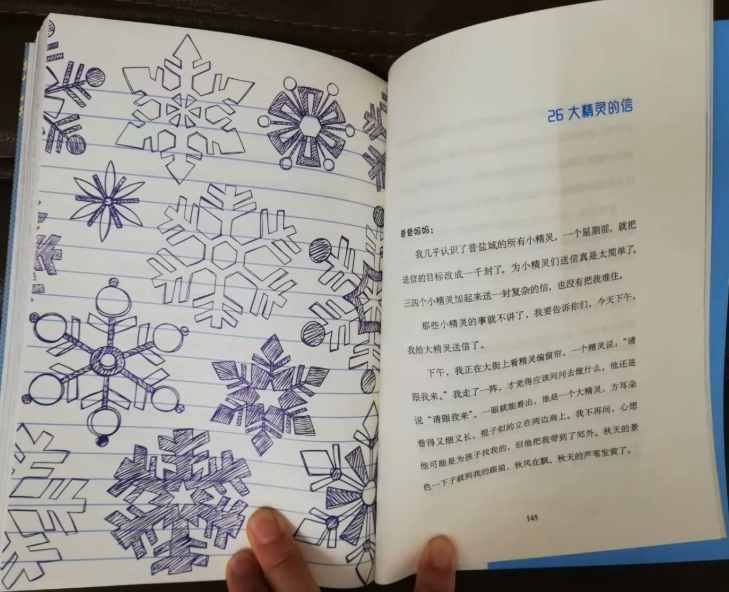 26 大精灵的信
爸爸妈妈：
我几乎认识了普盐城的所有小精灵，一个星期前，就把
送信的目标改成一千封了。为小精灵们送信真是太简单了，
三四个小精灵加起来送一封复杂的信，也没有把我难住。
那些小精灵的事就不讲了，我要告诉你们，今天下午，
我给大精灵送信了。
下午，我正在大街上看精灵编窗帘，一个精灵说：“请
跟我来。”我走了一阵，才觉得应该问问去做什么。他还是
说“请跟我来”。一眼就能看出，他是一个大精灵，方耳朵
卷得又细又长，棍子似的立在两边肩上。我不再问，心想
他可能是为孩子找我的。但他把我带到了郊外。秋天的景
色一下子就到我的跟前，秋风在飘，秋天的芦苇发黄了。
145